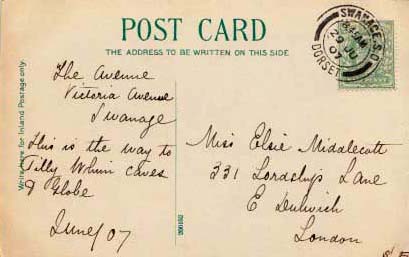 POST CARD
THE ADDRESS TO BE WRITTEN ON THIS SIDE.
SWANAGE S.O
29 JU
07
DORSET
Write here for Inland Postage only.
The Avenue
Victoria Avenue
Swanage
This is the way to
Tilly Whim Caves
& Globe
June/07
200162
Miss Elsie Middlecott
331 Lordslys Lane
E Dulwich
London